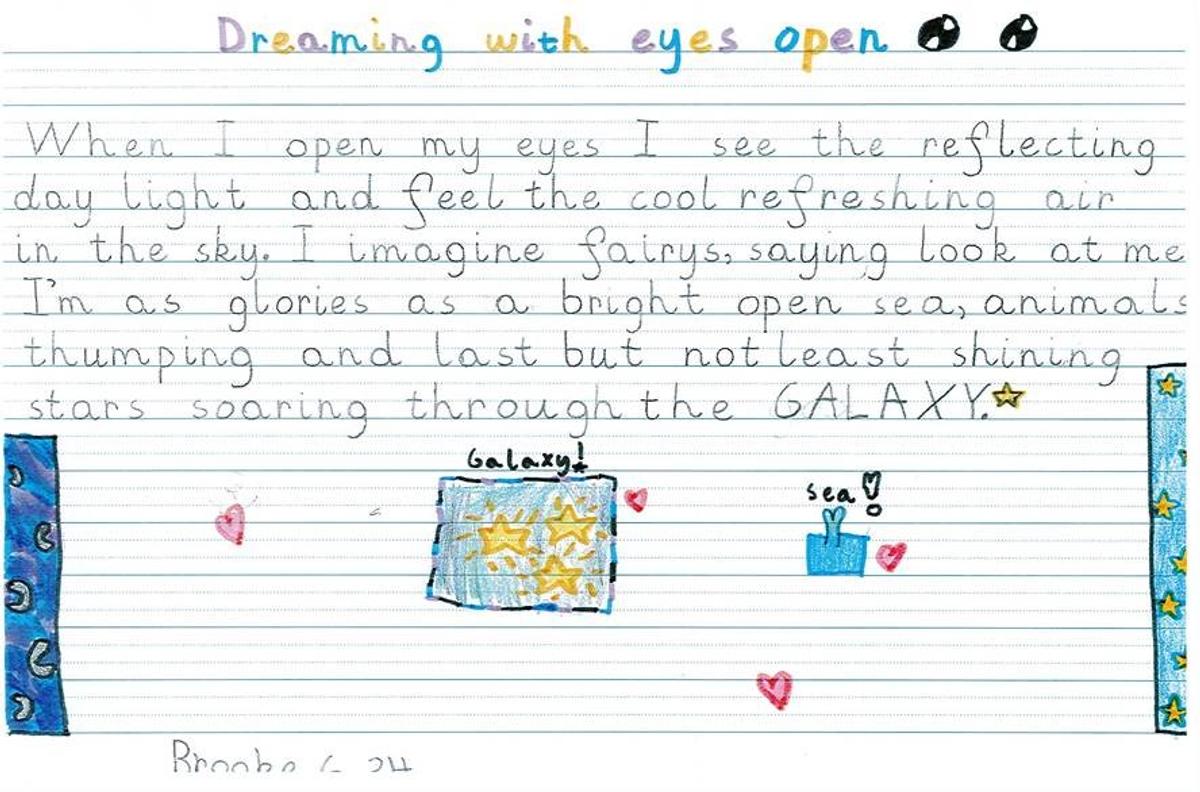 Dreaming with eyes open
When I open my eyes I see the reflecting
day light and feel the cool refreshing air
in the sky. I imagine fairys, saying look at me
I'm as glories as a bright open sea, animals
thumping and last but not least shining
stars soaring through the GALAXY.
Galaxy!
sea!